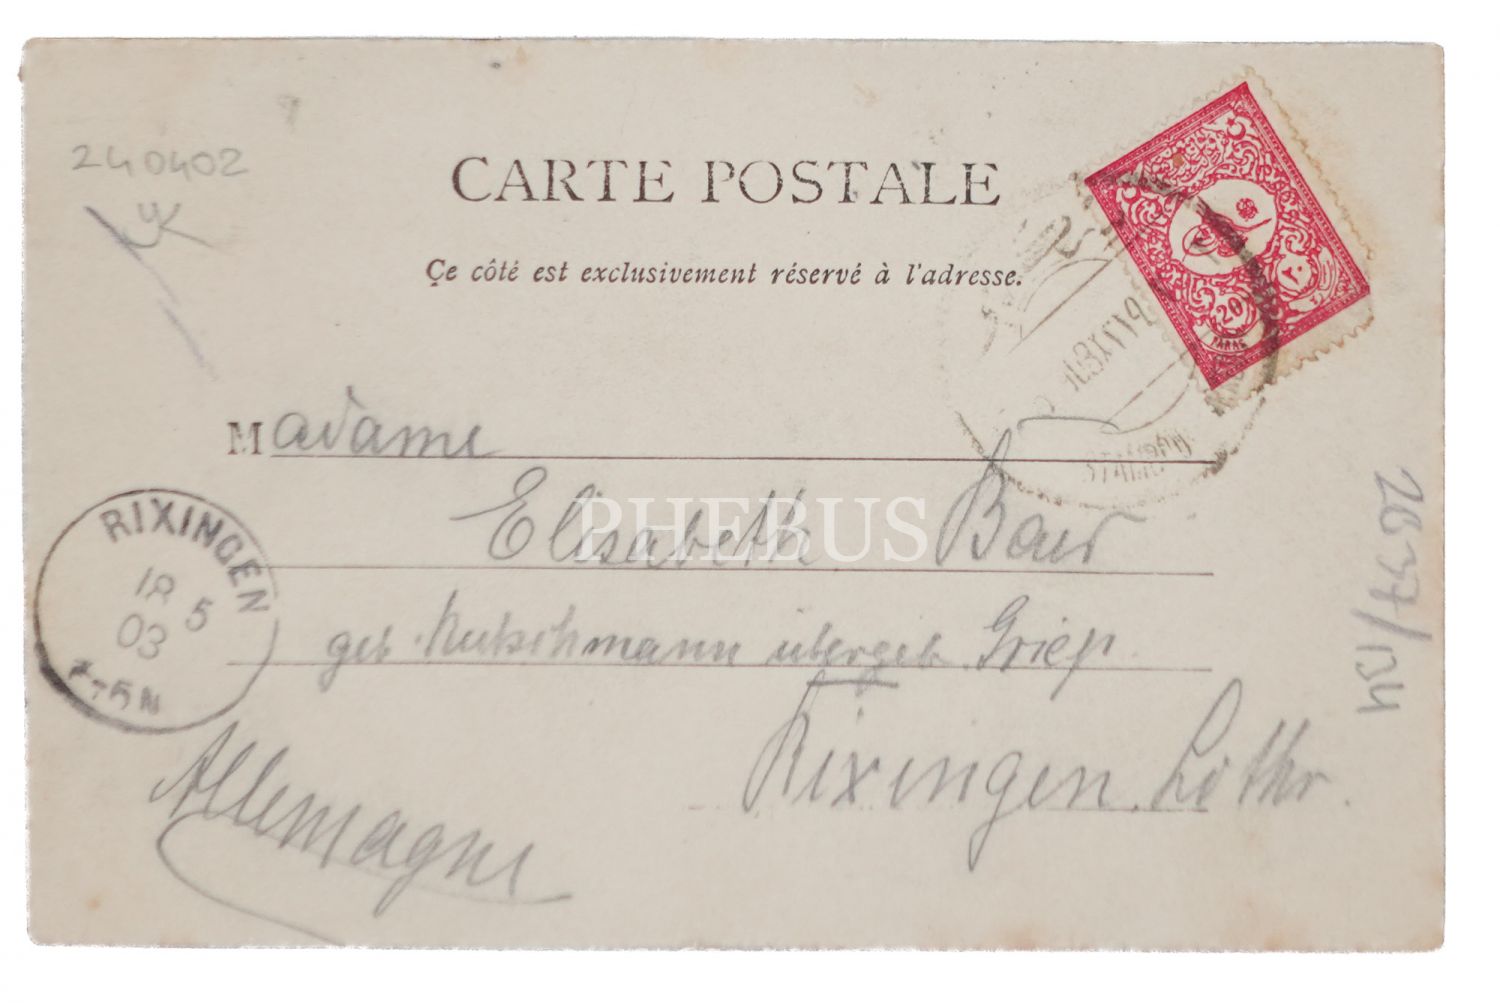 240402
CARTE POSTALE
Ce côté est exclusivement réservé à l'adresse.
20
PARAS
٢٠
Madame
Elisabeth Baur
PHEBUS
geb. Mutschmann übergeb. Griep.
Rixingen Lothr.
Allemagne
RIXINGEN
18 5
03
2637/134